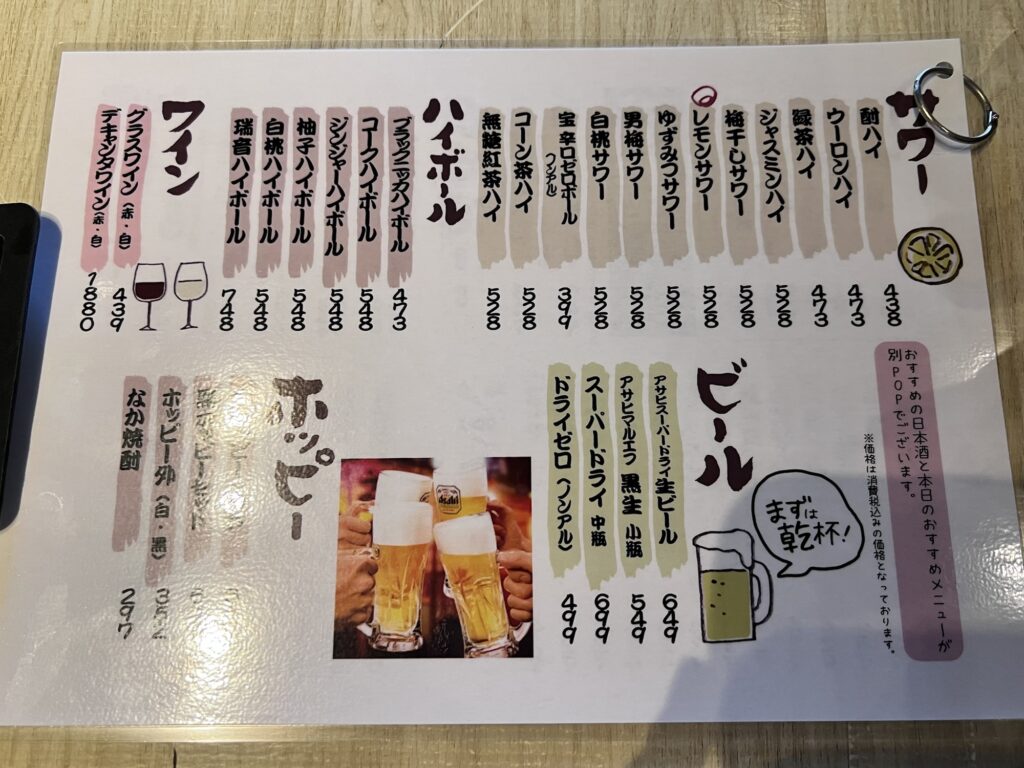 サワー
酎ハイ 438
ウーロンハイ 473
緑茶ハイ 473
ジャスミンハイ 528
梅干しサワー 528
レモンサワー 528
ゆずみつサワー 528
男梅サワー 528
白桃サワー 528
宝辛口ゼロボール(ノンアル) 399
コーン茶ハイ 528
無糖紅茶ハイ 528
ハイボール
ブラックニッカハイボール 473
コークハイボール 548
ジンジャーハイボール 548
柚子ハイボール 548
白桃ハイボール 548
瑞音ハイボール 748
ワイン
グラスワイン(赤・白) 439
デキャンタワイン(赤・白) 1880
おすすめの日本酒と本日のおすすめメニューが
別POPでございます。
※価格は消費税込みの価格となっております。
まずは
乾杯!
ビール
アサヒスーパードライ生ビール 649
アサヒマルエフ 黒生 小瓶 549
スーパードライ 中瓶 699
ドライゼロ(ノンアル) 499
Asahi
ホッピー
ホッピー外(白・黒)
なか焼酎 297